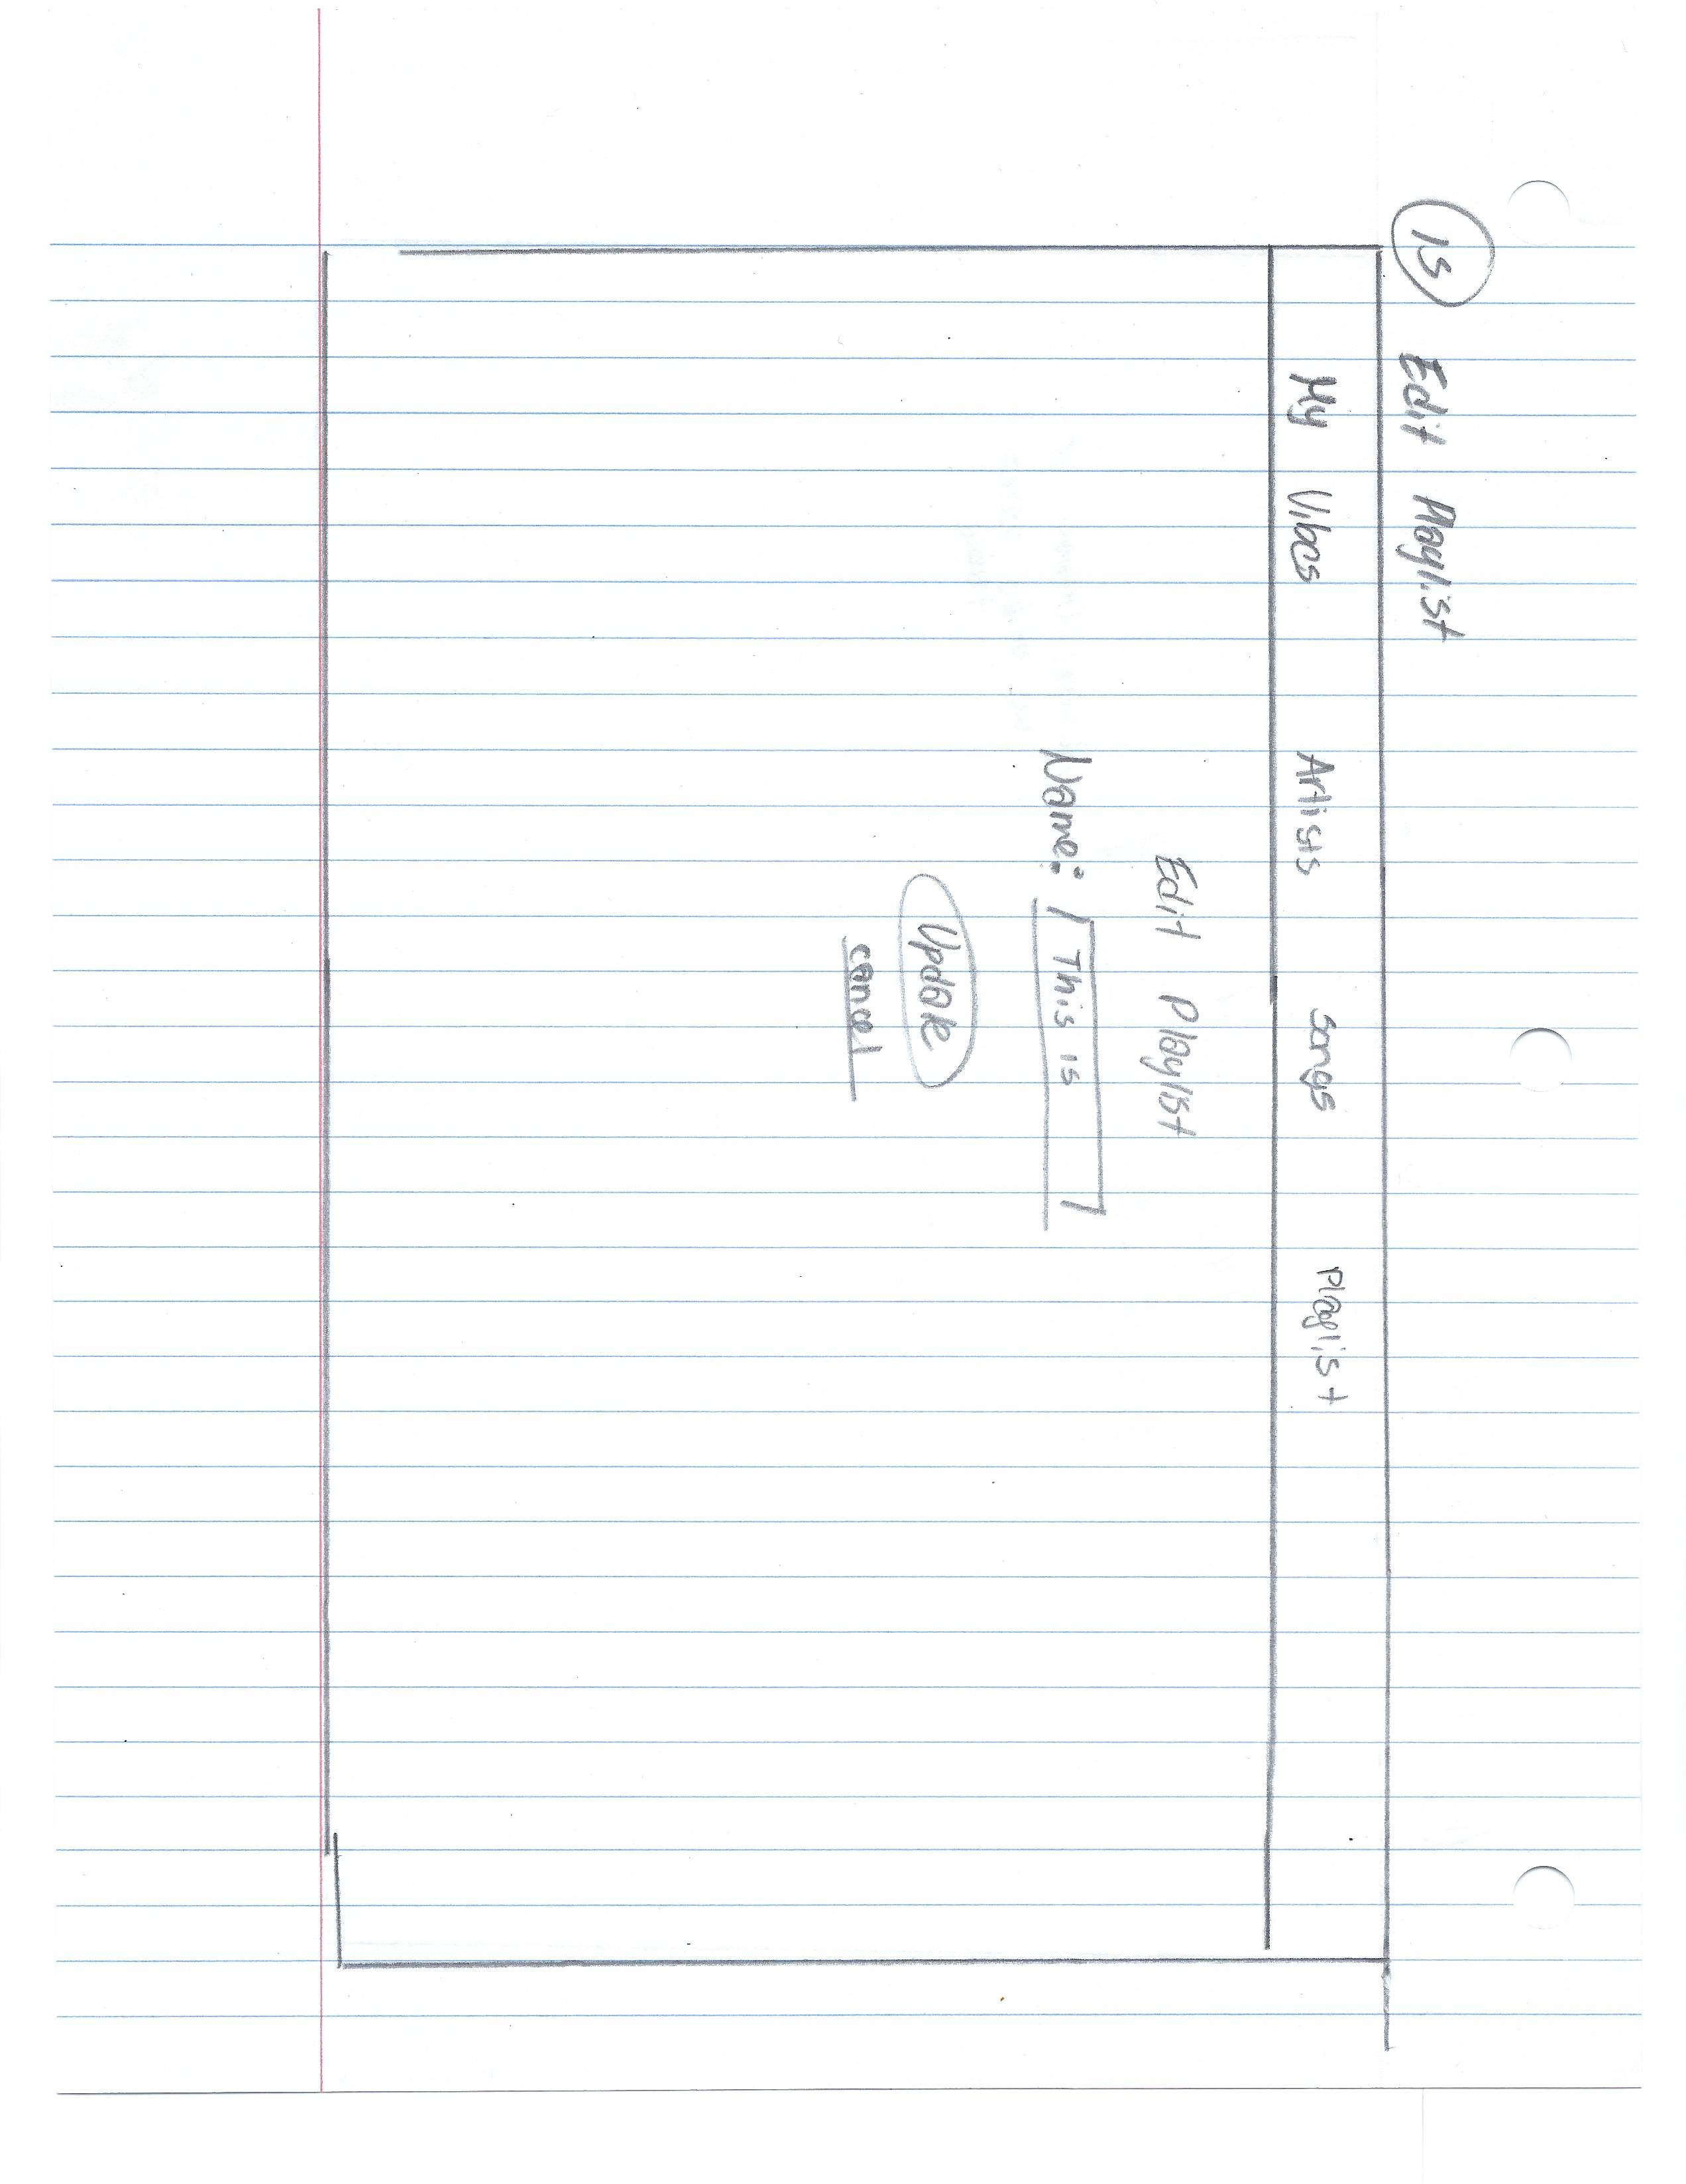 15 Edit Playlist
My Vibes Artists songs Playlist
Edit Playlist
Name: This is
Update
cancel